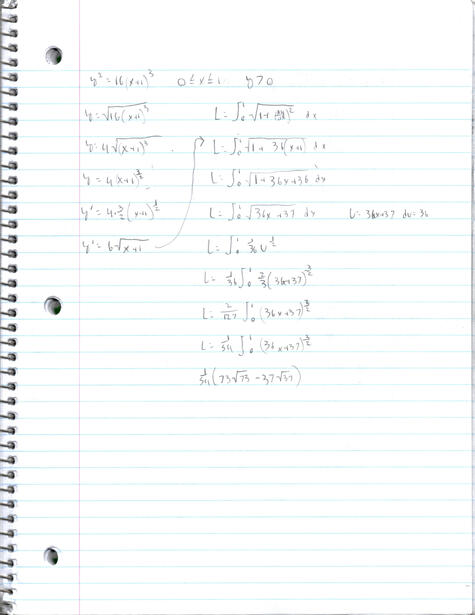 y² = 16(x+1)³ 0 ≤ x ≤ 1 y > 0
y = √16(x+1)³ L = ∫₀¹ √1 + (dy/dx)² dx
y = 4√(x+1)³ L = ∫₀¹ √1 + 36(x+1) dx
y = 4(x+1)^3/2 L = ∫₀¹ √1 + 36x+36 dx
y' = 4·3/2(x+1)^1/2 L = ∫₀¹ √36x+37 dx U = 36x+37 du = 36
y' = 6√x+1 L = ∫₀¹ 1/36 U^1/2
L = 1/36 ∫₀¹ 2/3(36x+37)^3/2
L = ∫₀¹ (36x+37)^3/2
L = 1/54 ∫₀¹ (36x+37)^3/2
1/54(73√73 - 37√37)